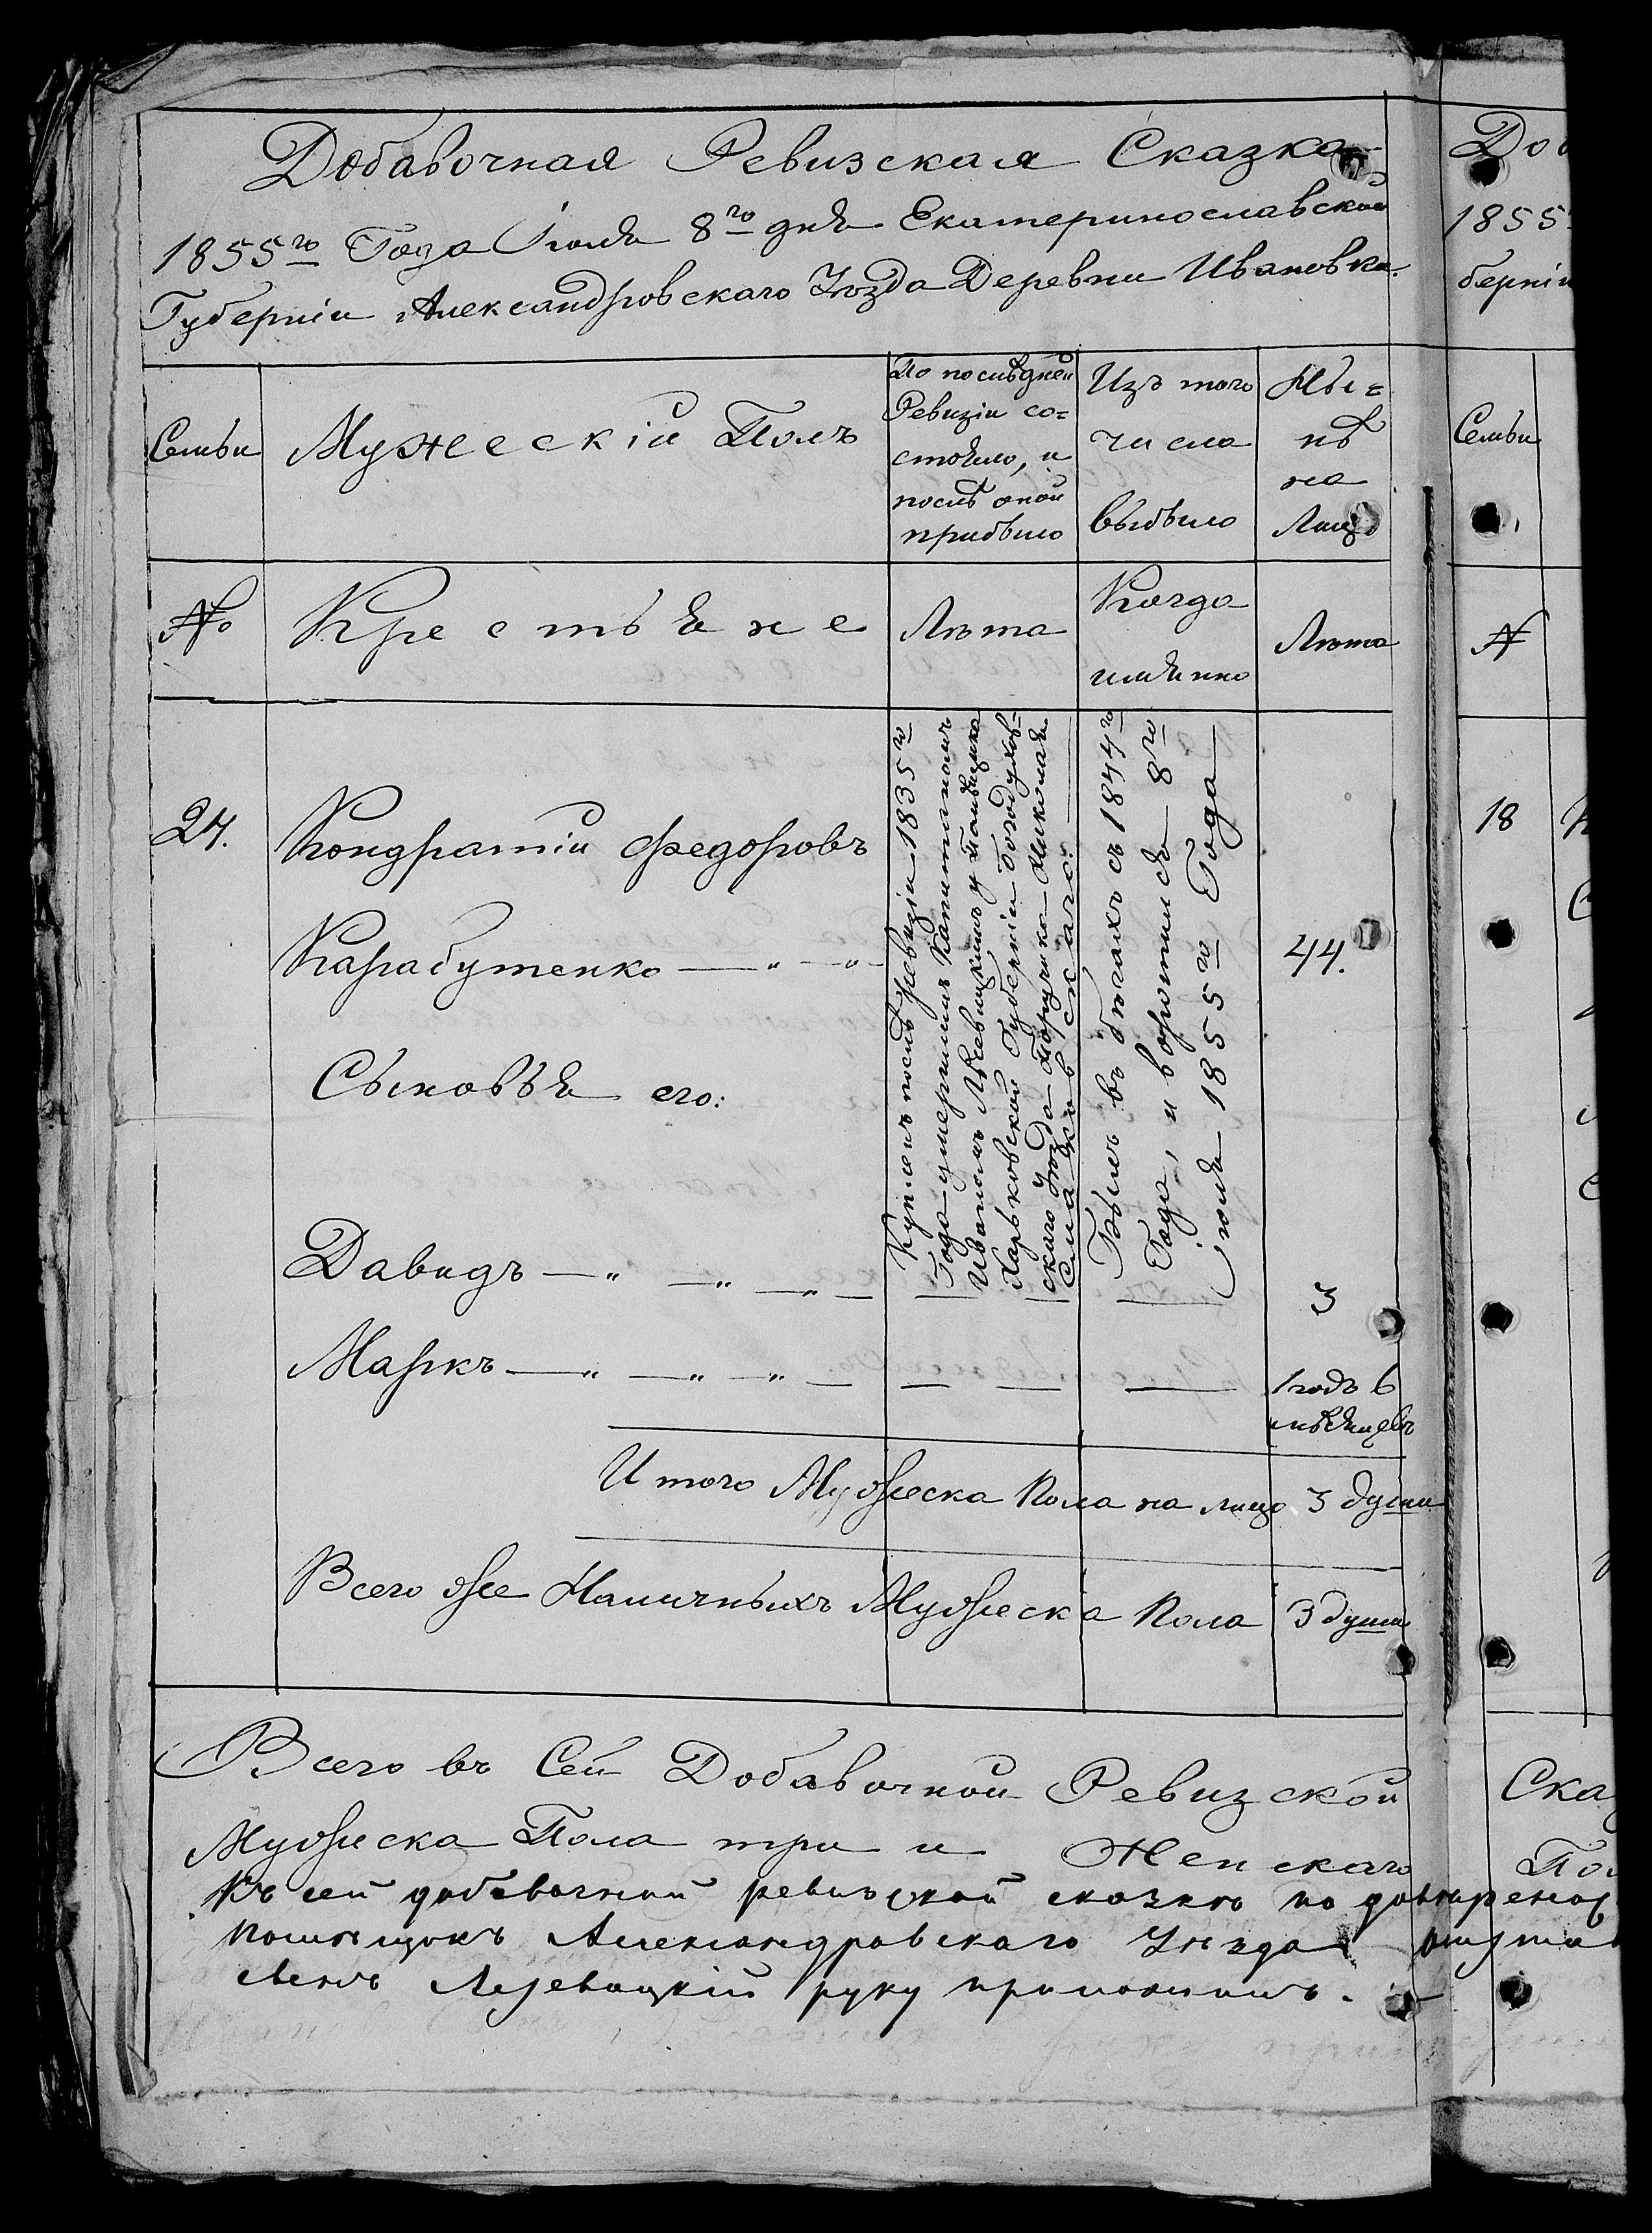 Добавочная Ревизская Сказка
1855го Года Іюля 8го дня Екатеринославской
Губерніи Александровскаго Уѣзда Деревни Ивановки.
Семьи
Мужескій Полъ
По послѣдней
Ревизіи со=
стояло, и
послѣ оной
прибыло
Изъ того
числа
выбыло
Ны=
нѣ
на
Лицо
№
Крестьяне
Лѣта
Когда
имянно
Лѣта
24.
Кондратій Федоровъ
Карабутенко — " — "
44.
Купленъ послѣ ревизіи 1835го
Года умершимъ Капитаномъ
Иваномъ Лезевицкимъ у Помѣщика
Харьковской Губерніи Богодухов=
скаго Уѣзда Поручика Николая
Былъ въ бѣгахъ съ 1844го
Года, и возвратился 8го
Іюля 1855го Года
Сыновья его:
Давидъ — " — " — " —
3
Маркъ — " — " — " —
1 годъ 6
мѣсяцевъ
И того Мужеска Пола на лицо 3 души
Всего же Наличныхъ Мужеска Пола 3 души
Всего въ Сей Добавочной Ревизской
Мужеска Пола три и Женскаго
Къ сей добавочной ревизской сказкѣ по
помѣщикъ Александровскаго Уѣзда
Лезевицкій руку приложилъ.
Доб
1855
берніи
Семьи
№
18
Ска
По